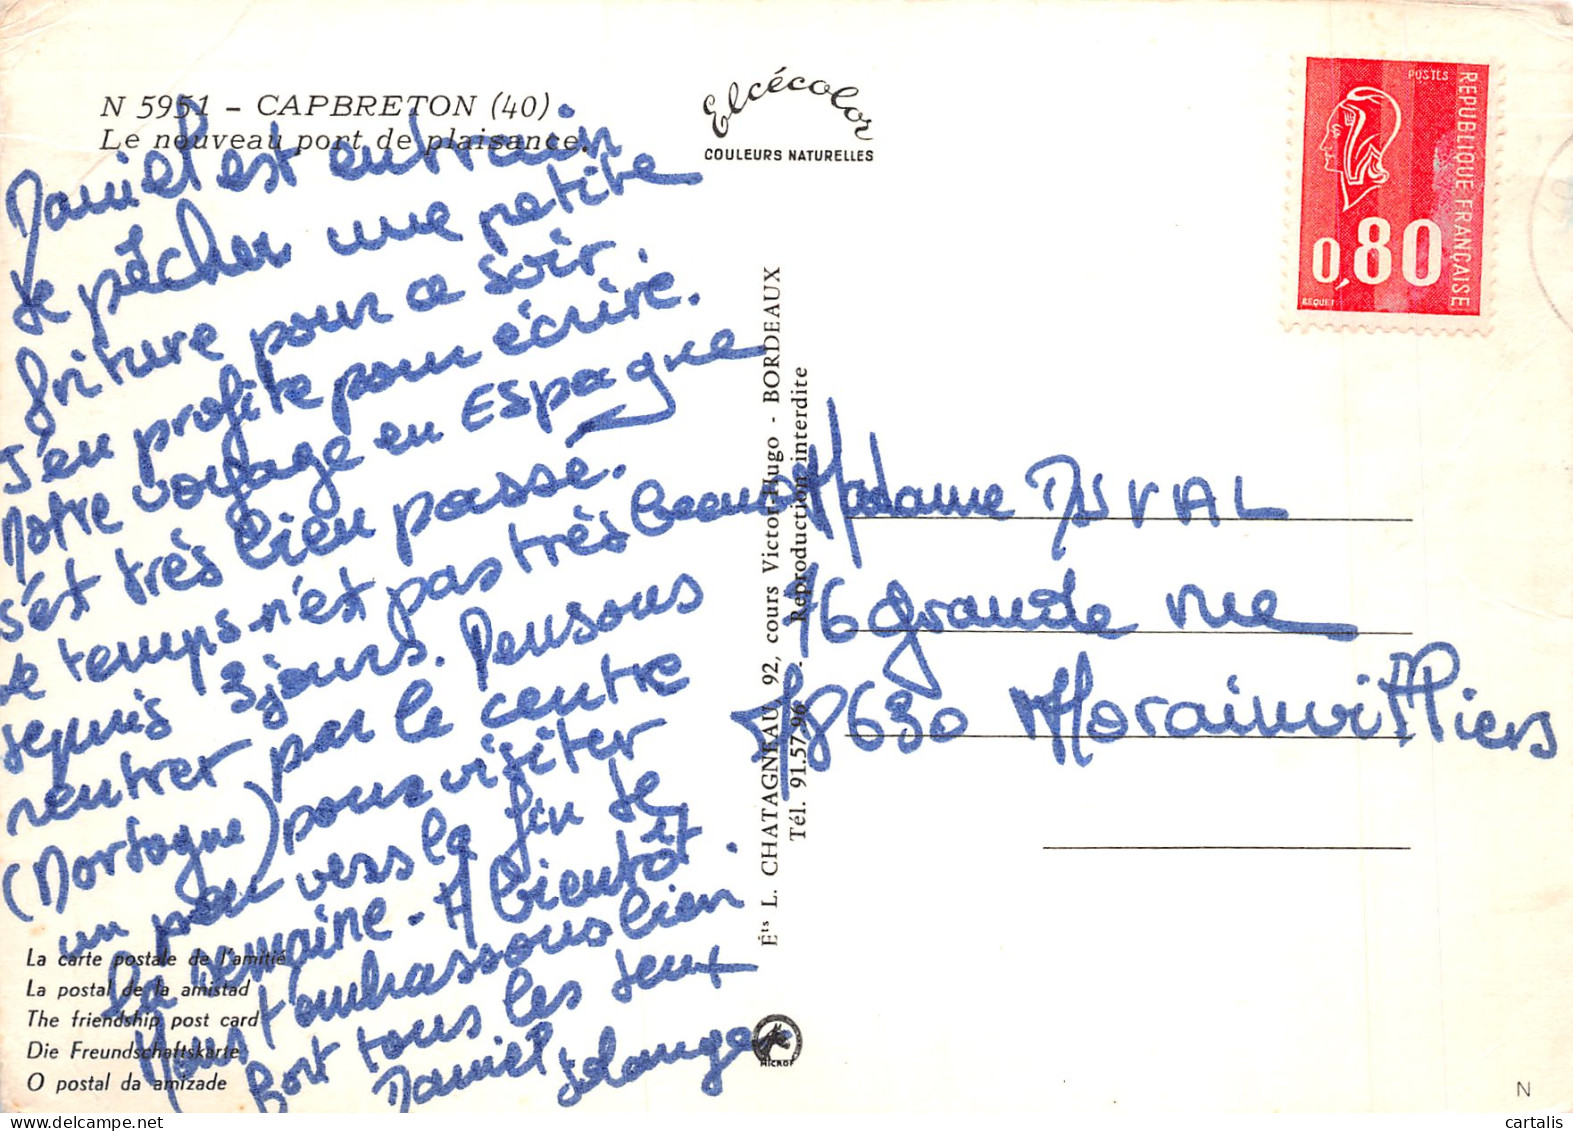 N 5951 - CAPBRETON (40).
Le nouveau port de plaisance.
Elcécolor
COULEURS NATURELLES
POSTES
REPUBLIQUE FRANÇAISE
0,80
BEQUET
Daniel est entrain
de pêcher une petite
friture pour ce soir
J'en profite pour écrire.
Notre voyage en Espagne
s'est très bien passé.
le temps n'est pas très beau
depuis 3 jours. Pensons
rentrer par le centre
(Mortagne) pour visiter
un peu vers la fin de
la semaine. A bientôt.
Nous t'embrassons bien
fort tous les deux
Daniel Solange
Éts L. CHATAGNEAU 92, cours Victor-Hugo - BORDEAUX
Tél. 91.57.96 - Reproduction interdite
Madame DUVAL
76 grande rue
78630 Morainvilliers
La carte postale de l'amitié
La postal de la amistad
The friendship post card
Die Freundschaftskarte
O postal da amizade
N
cartalis